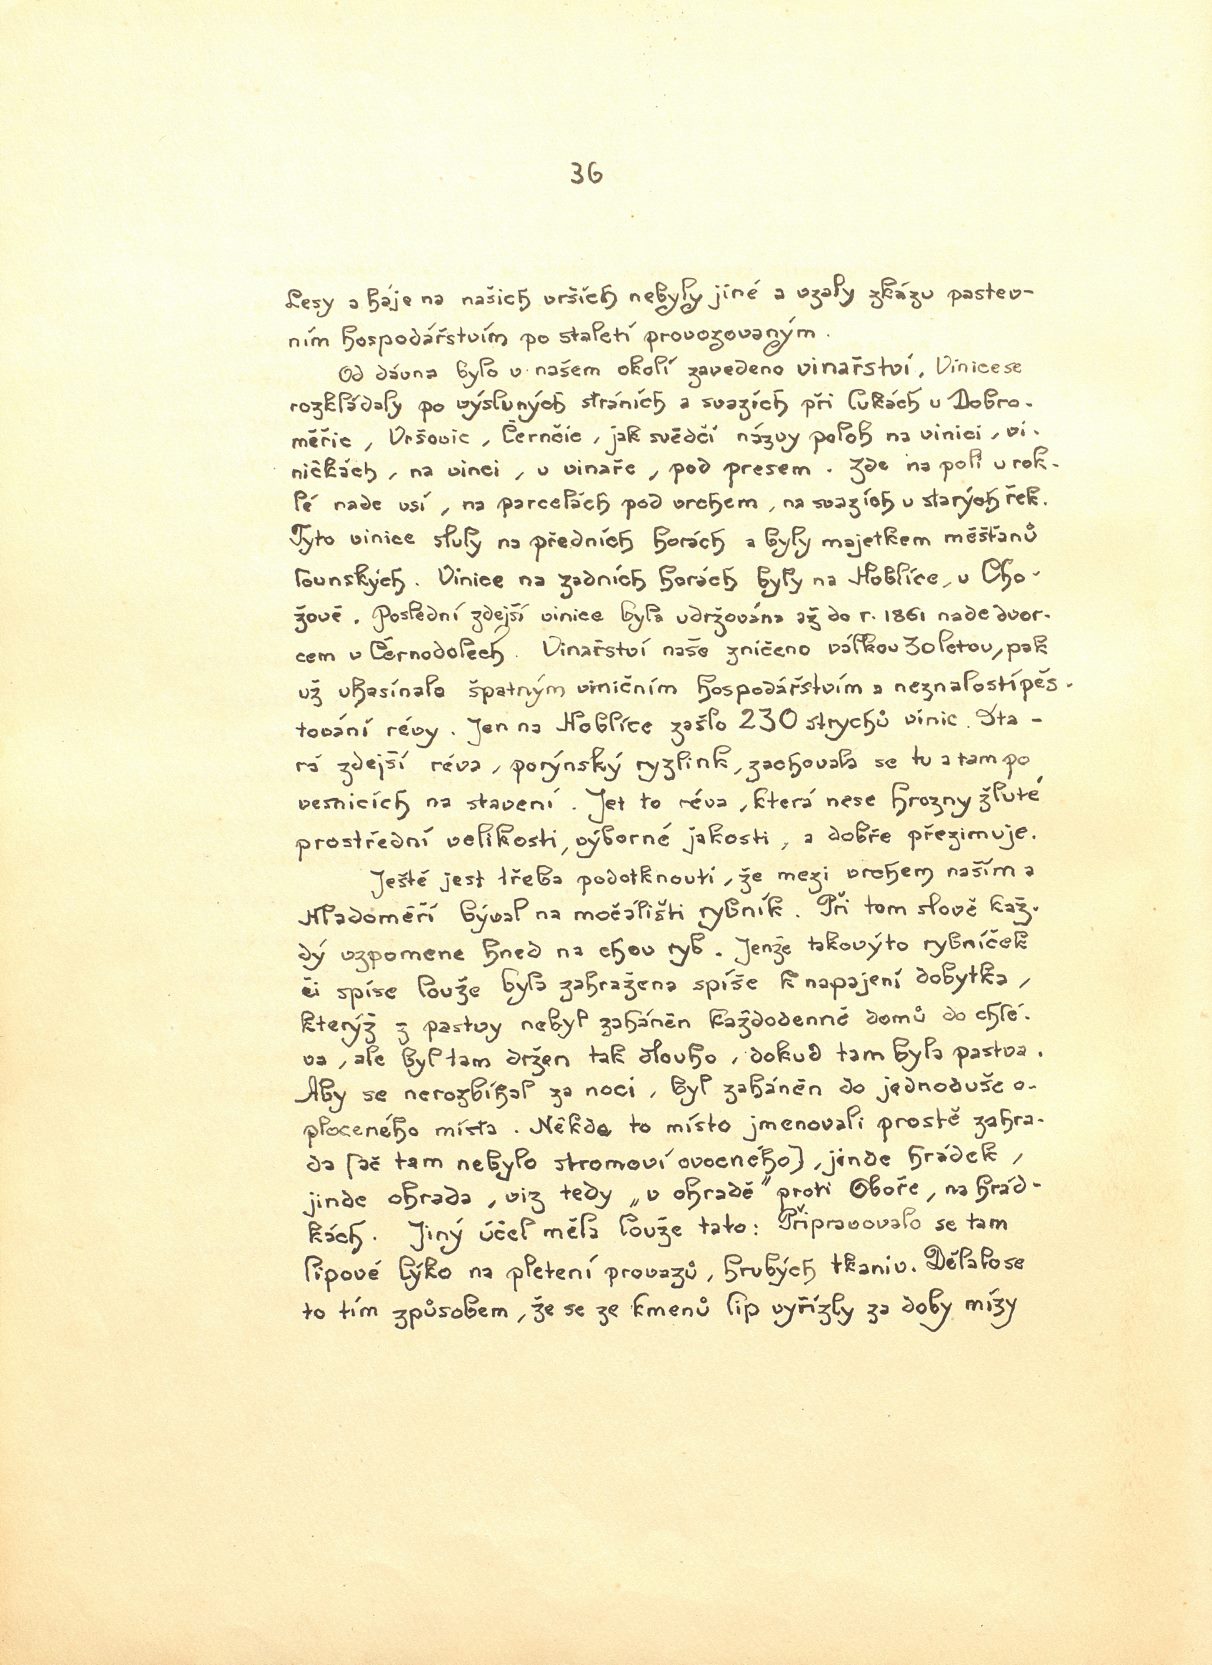 36
Lesy a háje na našich vrších nebyly jiné a vzaly zkázu pastev-
ním hospodářstvím po staletí provozovaným.
Od dávna bylo v našem okolí zavedeno vinařství. Vinice se
rozkládaly po výsluných stráních a svazích při lukách u Dobro-
měřic, Vršovic, Černčic, jak svědčí názvy poloh na vinici, vi-
ničkách, na vinci, u vinaře, pod presem. Zde na poli u rok-
lé nade vsí, na parcelách pod vrchem, na svazích u starých řek.
Tyto vinice sluly na předních horách a byly majetkem měšťanů
lounských. Vinice na zadních horách byly na Hoblíce, u Cho-
žově. Poslední zdejší vinice byla udržována až do r. 1861 nade dvor-
cem v Černodolech. Vinařství naše zničeno válkou 30letou, pak
už uhasínalo špatným viničním hospodářstvím a neznalostí pěs-
tování révy. Jen na Hoblíce zašlo 230 strychů vinic. Sta-
rá zdejší réva, porýnský ryzlink, zachovala se tu a tam po
vesnicích na stavení. Jet to réva, která nese hrozny žluté
prostřední velikosti, výborné jakosti, a dobře přezimuje.
Ještě jest třeba podotknouti, že mezi vrchem naším a
Hladoměří býval na močálišti rybník. Při tom slově kaž-
dý vzpomene hned na chov ryb. Jenže takovýto rybníček
či spíse louže byla zahražena spíše k napajení dobytka,
kterýž z pastvy nebyl zaháněn každodenně domů do chlé-
va, ale byl tam držen tak dlouho, dokud tam byla pastva.
Aby se nerozbíhal za noci, byl zaháněn do jednoduše o-
ploceného místa. Někde to místo jmenovali prostě zahra-
da (ač tam nebylo stromoví ovocného), jinde hrádek,
jinde ohrada, viz tedy „v ohradě" proti Oboře, na hrád-
kách. Jiný účel měla louže tato: Připravovalo se tam
lipové lýko na pletení provazů, hrubých tkaniv. Dělalo se
to tím způsobem, že se ze kmenů lip vyřízly za doby mízy